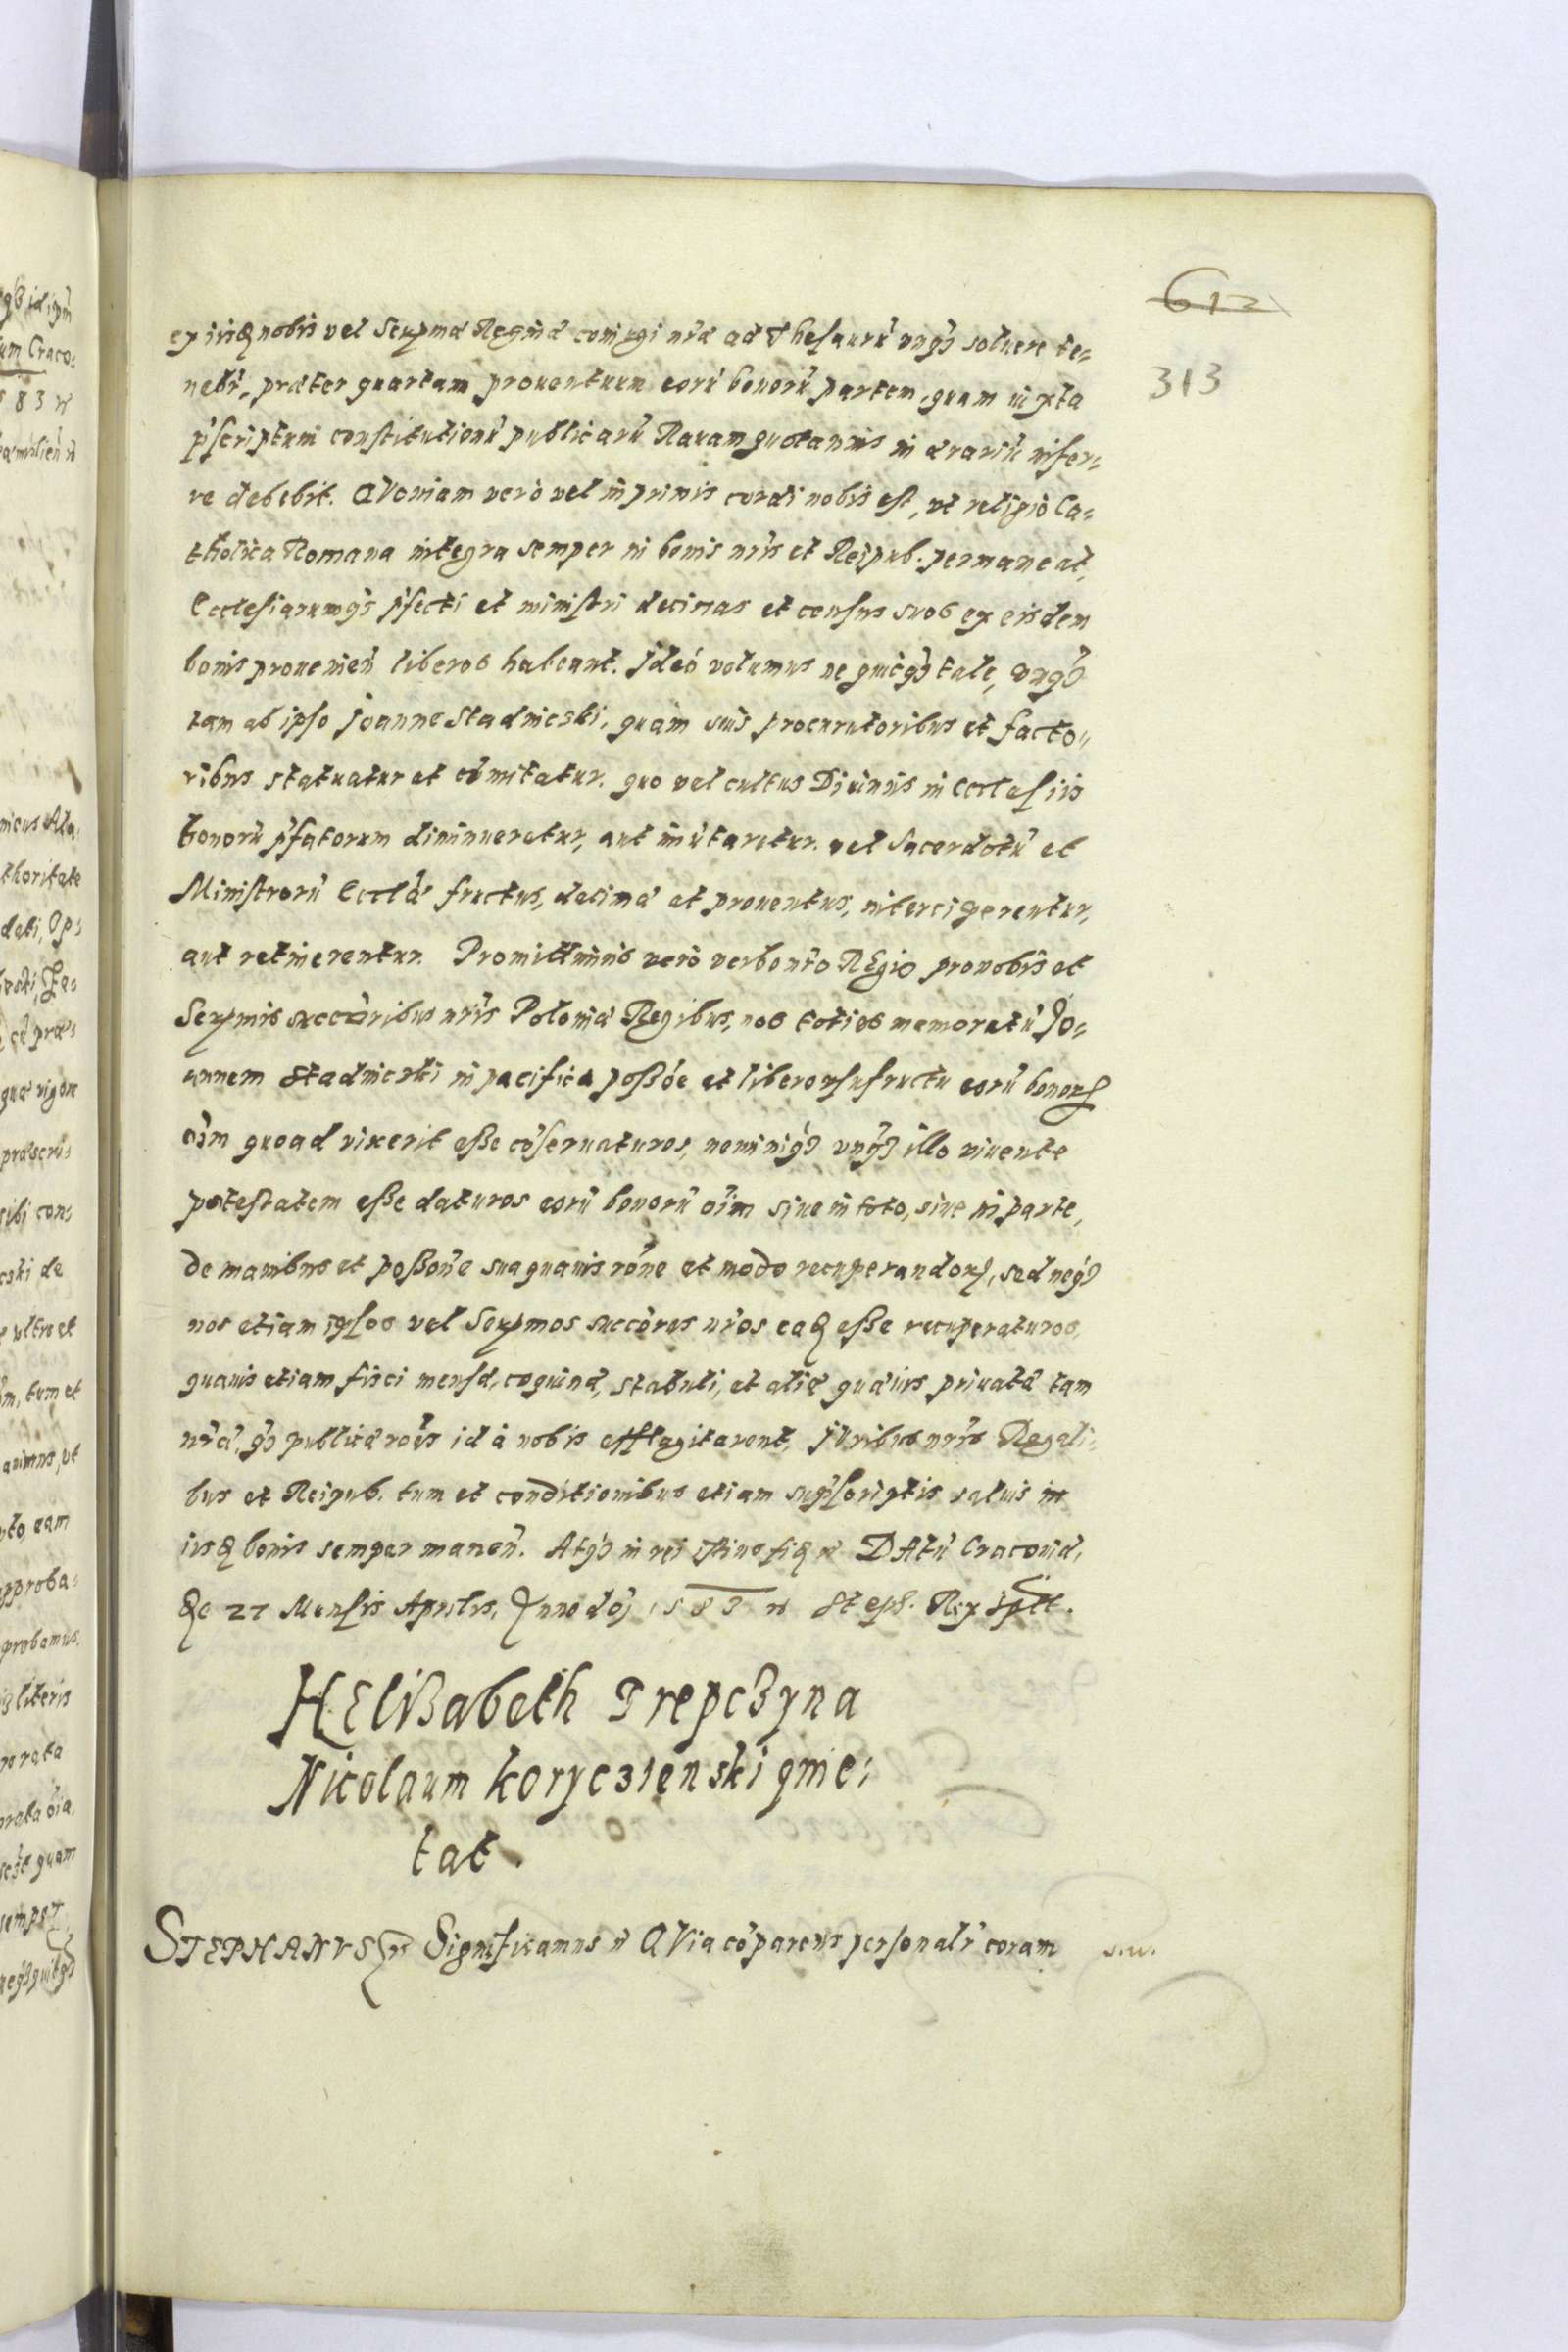 612
313
ex iisq nobis vel Serṁae Reginae coniugi nr̄ae ad Thesaurū vnq̃ȝ soluere te=
nebr̃, praeter quartam prouentuum eorū bonorū partem, quam iuxta
p̃scriptum constitutionū publicarū Rauam quotannis in aerariū infer=
re debebit. QVoniam verò vel inprimis cordi nobis est, vt religio Ca=
tholica Romana integra semper in bonis nr̄is et Reipub. permaneat,
Ecclesiarumq̃ȝ p̃fecti et ministri decimas et census suos ex eisdem
bonis prouenieñ liberos habeant. Ideó volumus ne quicq̃ȝ tale, vnq̃ȝ
tam ab ipso Joanne Stadnicski, quàm suis procuratoribus et facto=
ribus statuatur et cōmitatur. quo vel cultus Diuinus in Ecclesiis
bonorū p̃fatorum diminueretur, aut imūtaretur. vel Sacerdotū et
Ministrorū Eccl̃ae fructus, decimae et prouentus, interciperentur,
aut retinerentur. Promittimus verò verbo nr̃o REgio pro nobis et
Serṁis succ̃oribus nr̄is Poloniae Regibus, nos toties memoratū Jo=
annem Stadnicski in pacifica posśoe et libero vsufructu eorū bonorꝝ
oīm quoad vixerit esse cōseruaturos, neminiq̃ȝ vnq̃ȝ illo viuente
potestatem esse daturos eorū bonorū oīm siue in toto, siue in parte,
de manibus et posśone sua quauis rōne et modo recuperandorꝝ, sed neq̃ȝ
nos etiam ipsos vel Serṁos succ̃ores nr̃os eaq esse recuperaturos,
quauis etiam fisci mensae, coquinae, stabuli, et aliae quaeuis priuatae tam
nr̃ae, q̃ȝ publicae rōes id à nobis efflagitarent, JVribus nr̃is Regali=
bus et Reipub. tum et conditionibus etiam sup̃scriptis saluis in
iisq bonis semper maneñ. Atq̃ȝ in rei
DAtū Cracouiae,
27 Mensis Aprilis, Anno dō 1583 Steph. Rex
HEliSabeth TrepcZyna
Nicolaum koryczienski qnie=
tat.
STEPHANVS Significamus QVia cōparens personalr̃ coram